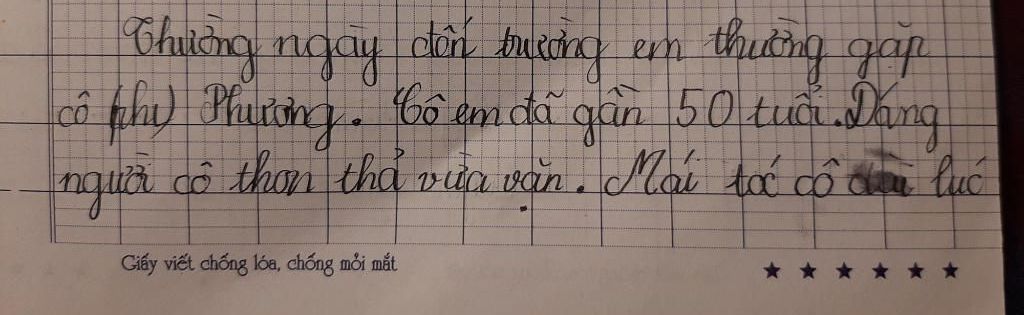 Thường ngày đến trường em thường gặp
cô (thu) Phương. Cô em đã gần 50 tuổi. Dáng
người cô thon thả vừa vặn. Mái tóc cô lúc
Giấy viết chống lóa, chống mỏi mắt